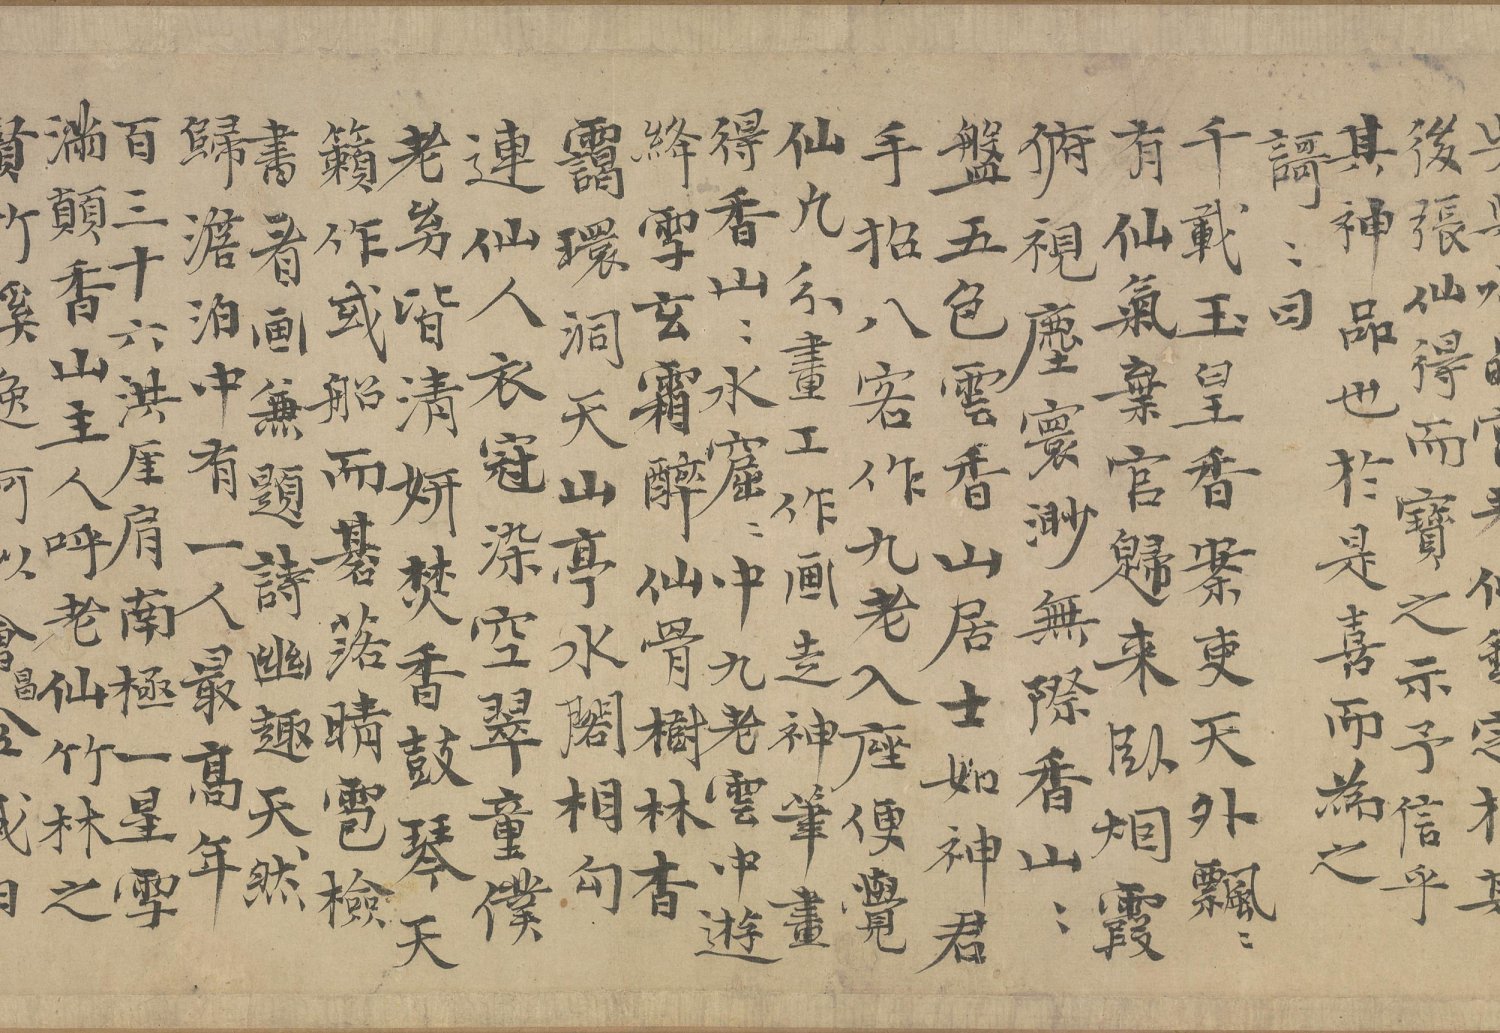 後張仙得而寶之示予信乎
其神品也於是喜而為之
謌〻曰
千載玉皇香案吏天外飄〻
有仙氣棄官歸来臥烟霞
俯視塵寰渺無際香山〻
盤五色雲香山居士如神君
手招八客作九老入座便覺
仙凡分畫工作画走神筆畫
得香山〻水窟〻中九老雲中遊
絳雪玄霜醉仙骨樹林杳
靄環洞天山亭水閣相勾
連仙人衣冠染空翠童僕
老幼皆清妍焚香鼓琴天
籟作或船而碁落晴雹檢
書看画無題詩幽趣天然
歸澹泊中有一人最高年
百三十六洪厓肩南極一星雪
滿顛香山主人呼老仙竹林之
賢竹溪逸何以會昌